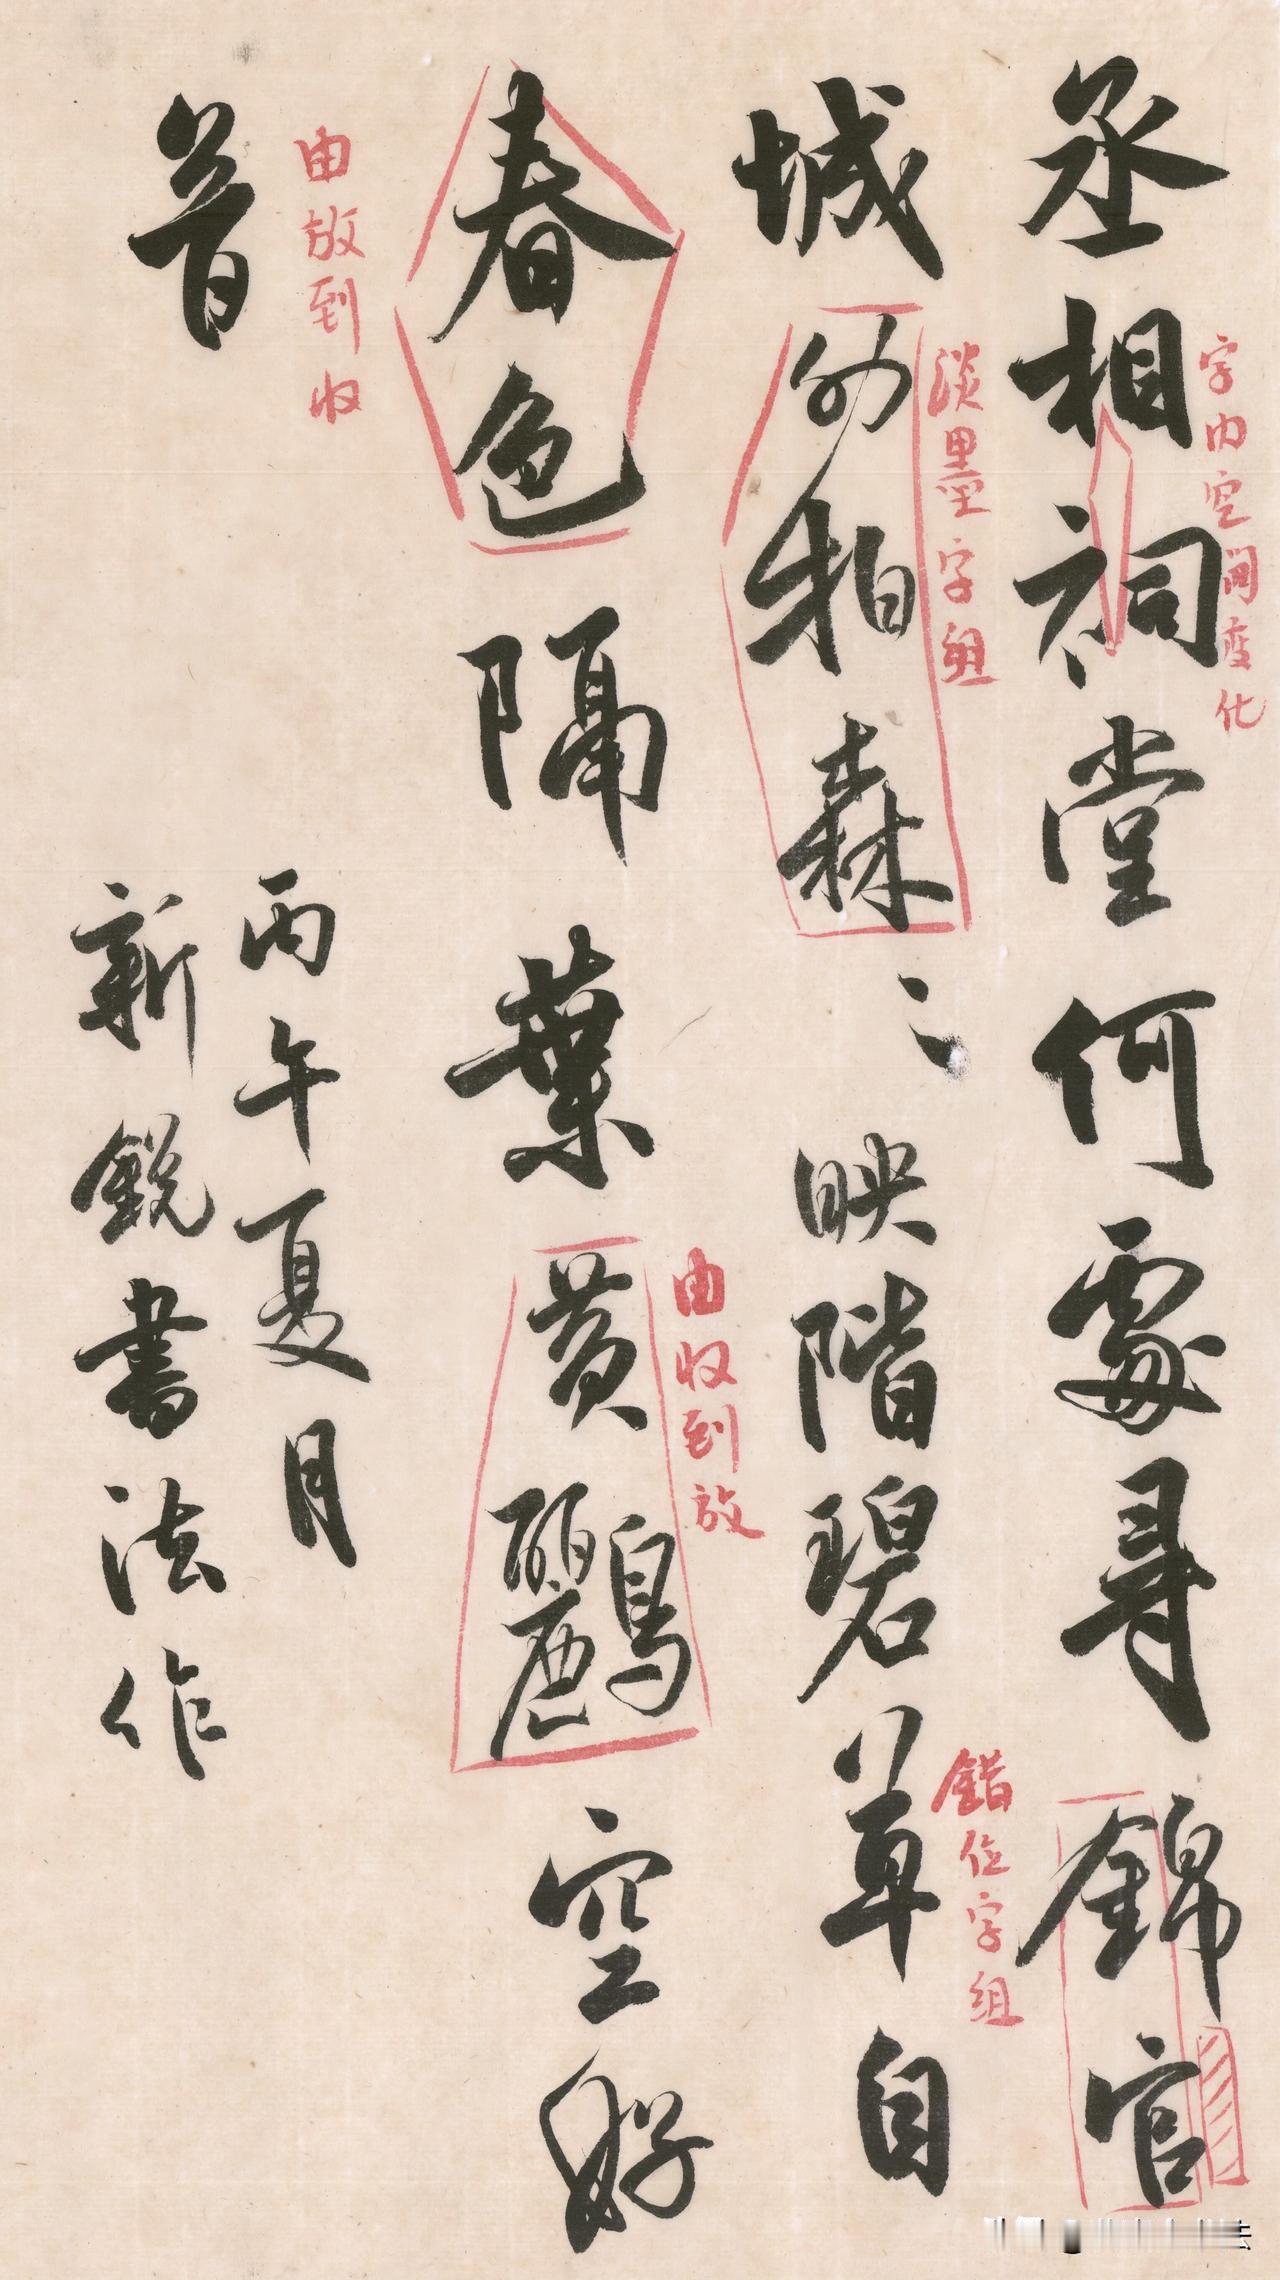 丞相祠堂何處尋錦官
字内空间变化
錯位字组
城外柏森〻映階碧草自
淡墨字组
春色隔葉黄鸝空好
由收到放
由放到收
音
丙午夏月
新銳書法作